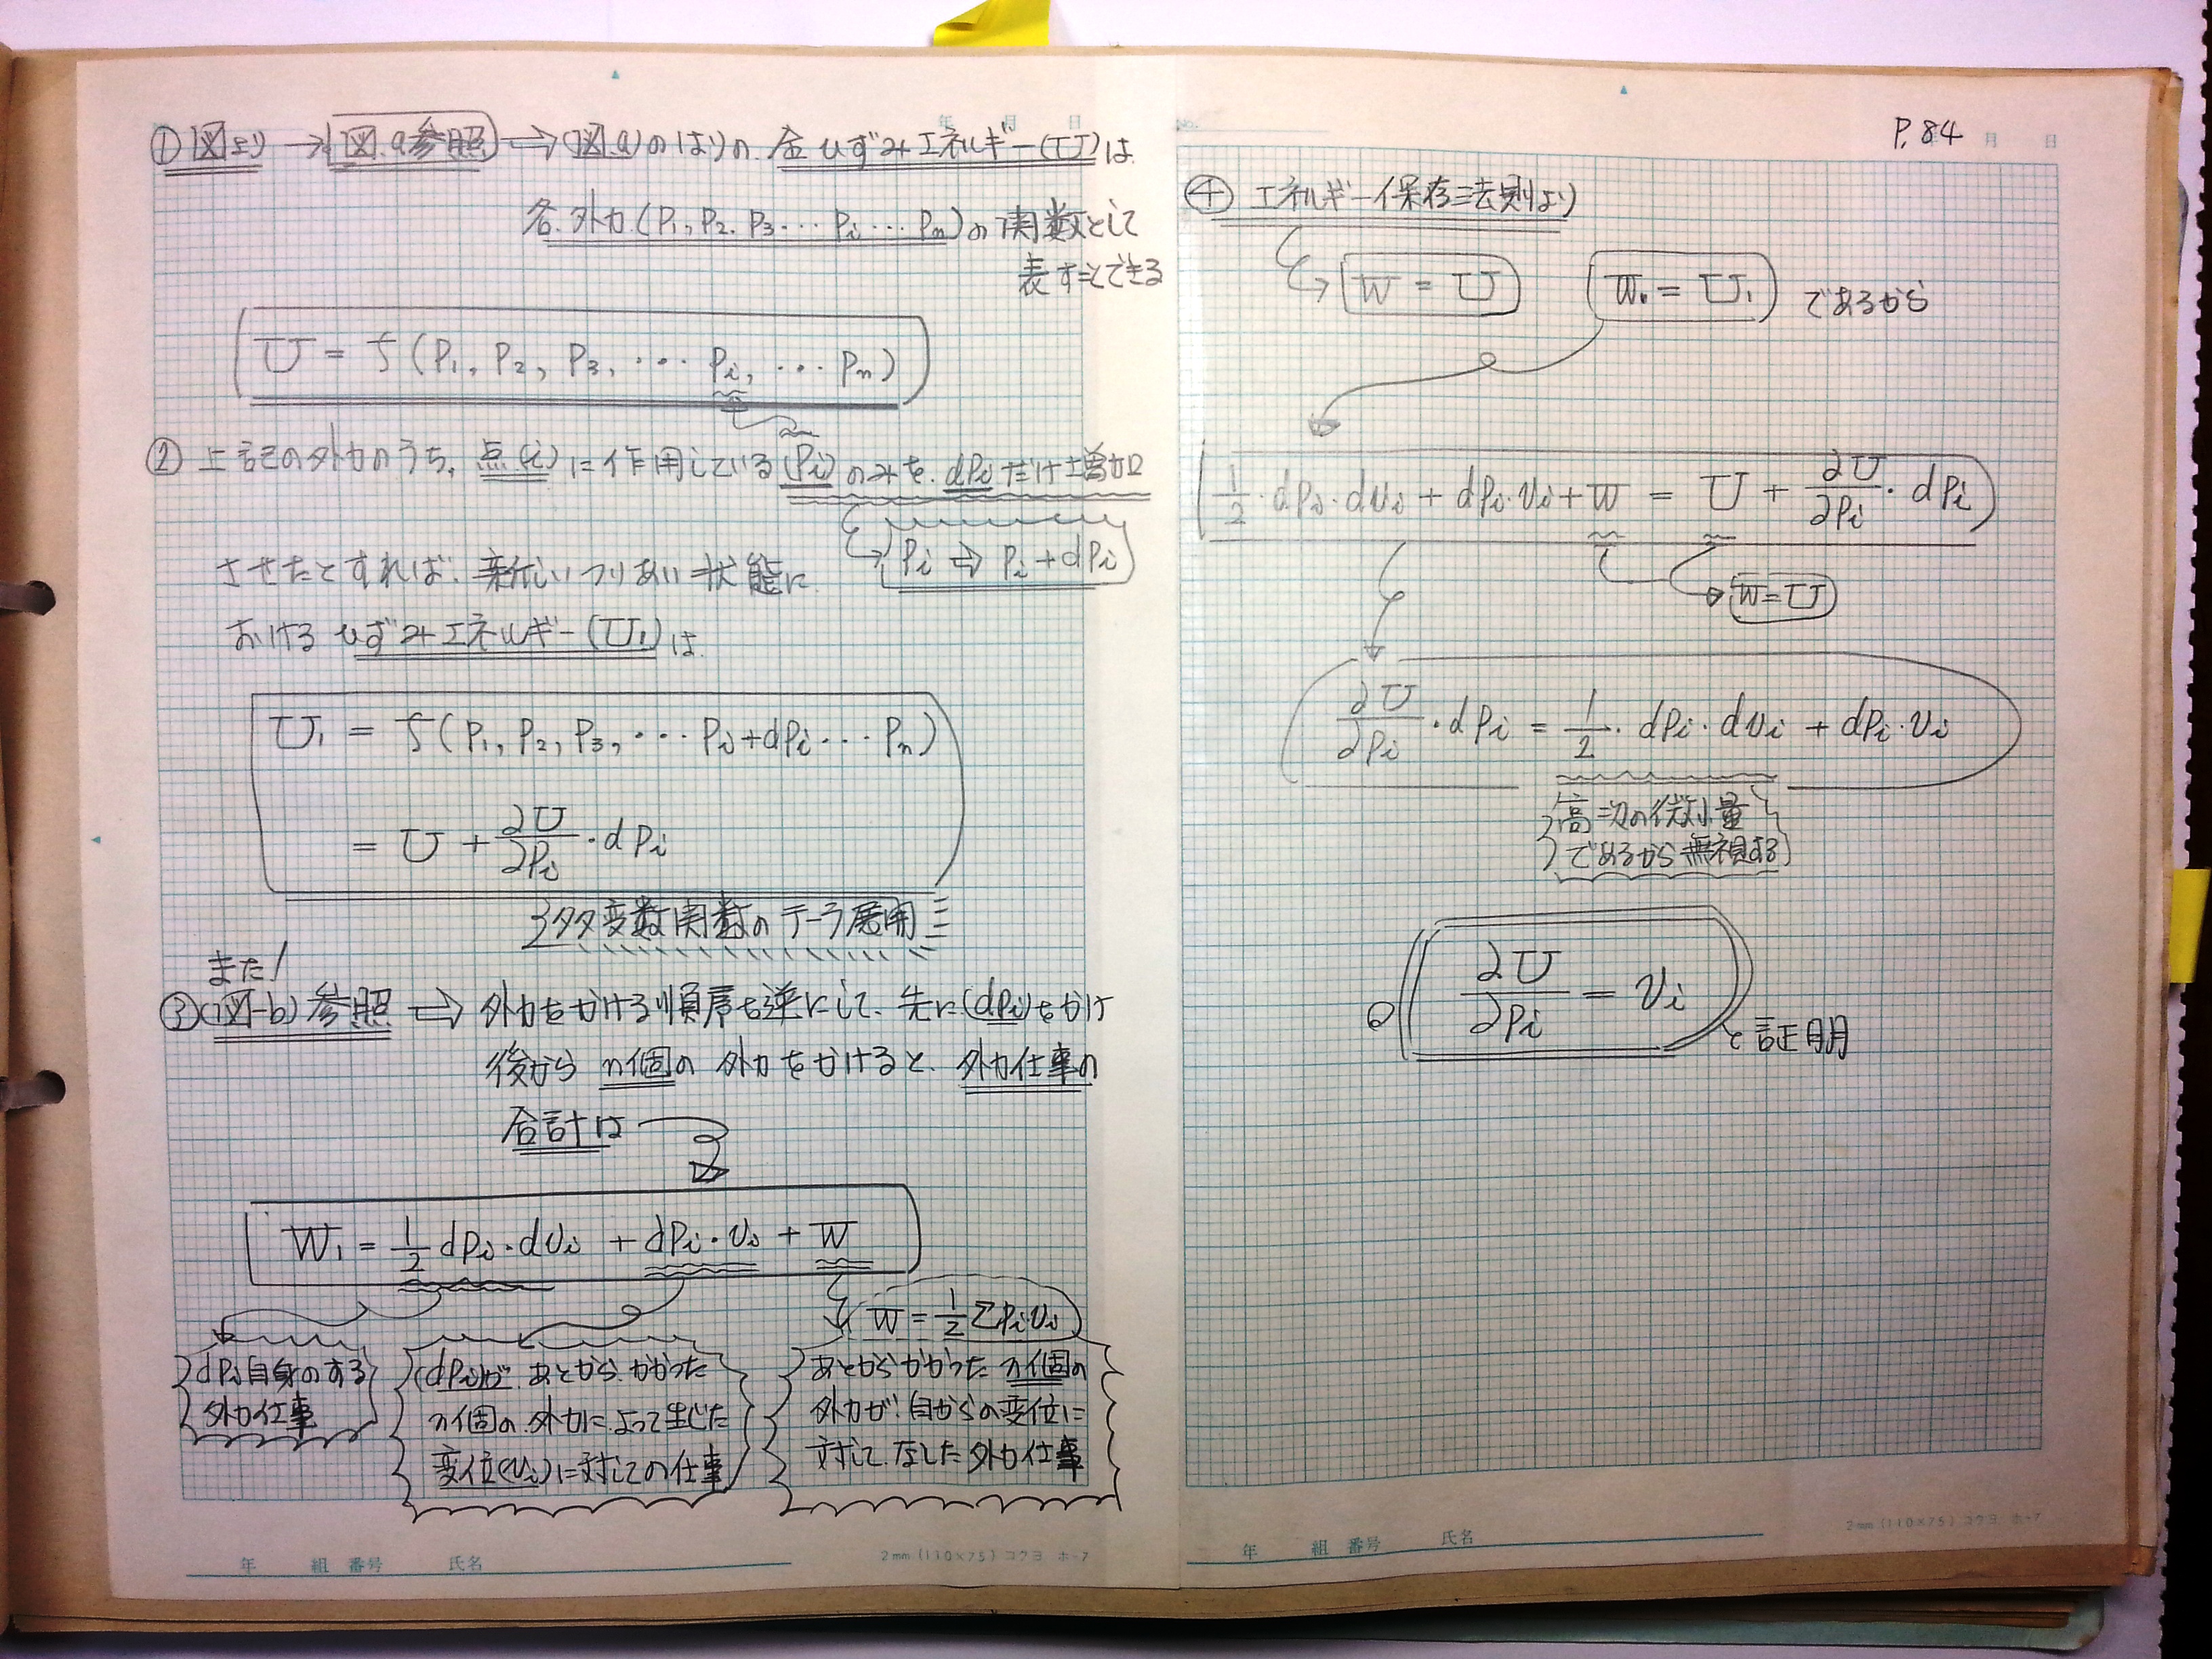 年 月 日
① 図より → 図.a参照 ⇒ (図.a)のはりの.全ひずみエネルギー(U)は
各.外力.(P₁, P₂, P₃・・・Pi・・・Pn)の関数として
表すことできる
U = f(P₁, P₂, P₃, ・・・Pi, ・・・Pn)
② 上記の外力のうち、点(i)に作用している(Pi)のみを.dPiだけ増加
Pi ⇒ Pi + dPi
させたとすれば、新しいつりあい状態に
おける ひずみエネルギー(U₁)は
U₁ = f(P₁, P₂, P₃, ・・・Pi+dPi・・・Pn)
= U + ∂U/∂Pi・dPi
多変数関数のテーラ展開
また!
③(図-b)参照 ⇒ 外力をかける順序を逆にして、先に(dPi)をかけ
後から n個の 外力をかけると、外力仕事の
合計は
W₁ = 1/2 dPi・dvi + dPi・vi + W
W = 1/2 ΣPivi
dPi自身のする
外力仕事
(dPi)が.あとから.かかった
n個の.外力によって生じた
変位(vi)に対しての仕事
あとからかかった n個の
外力が、自からの変位に
対して.なした外力仕事
年 組 番号 氏名
2mm (110×75) コクヨ ホ-7
No.
P.84
年 月 日
④ エネルギー保存法則より
W = U
W₁ = U₁ であるから
1/2・dPi・dvi + dPi・vi + W = U + ∂U/∂Pi・dPi
W=U
∂U/∂Pi・dPi = 1/2・dPi・dvi + dPi・vi
高次の微小量
であるから無視する
∂U/∂Pi = vi
と証明
年 組 番号 氏名
2mm (110×75) コクヨ ホ-7